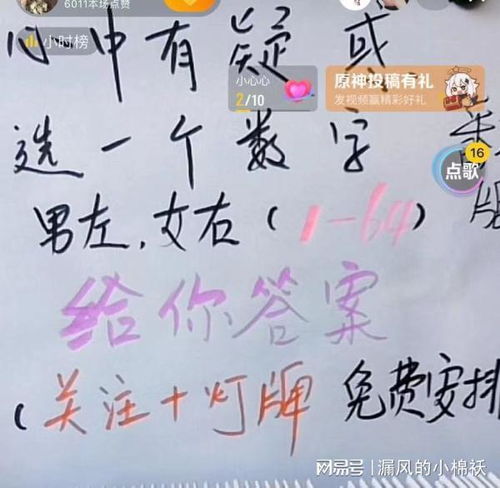 6011本场点赞
小时榜
心中有疑或
小心心
2/10
原神投稿有礼
发视频赢精彩好礼
选一个数字
16
点歌
男左,女右(1-64)
版
给你答案
(关注+灯牌 免费安排
网易号|漏风的小棉袄